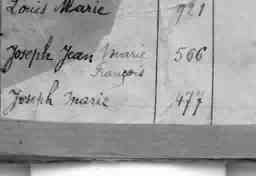 Louis Marie 921
Joseph Jean Marie 566
François
Joseph Marie 477